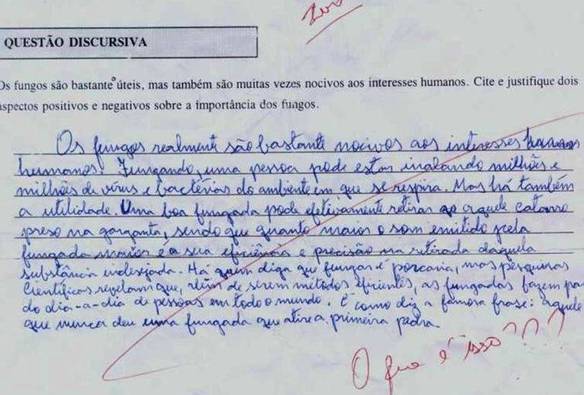 Zero
QUESTÃO DISCURSIVA
Os fungos são bastante úteis, mas também são muitas vezes nocivos aos interesses humanos. Cite e justifique dois
aspectos positivos e negativos sobre a importância dos fungos.
Os fungos realmente são bastante nocivos aos interesses
humanos. Fungando, uma pessoa pode estar inalando milhões e
milhões de vírus e bactérias do ambiente em que se respira. Mas há também
a utilidade. Uma boa fungada pode efetivamente retirar aquele catarro
preso na garganta, sendo que quanto maior o som emitido pela
fungada maior é a sua eficiência e precisão na retirada daquela
substância indesejada. Há quem diga que fungar é porcaria, mas pesquisas
científicas revelam que, além de serem métodos eficientes, as fungadas fazem pa
do dia-a-dia de pessoas em todo o mundo. É como diz a famosa frase: aquele
que nunca deu uma fungada que atire a primeira pedra.
O que é isso???